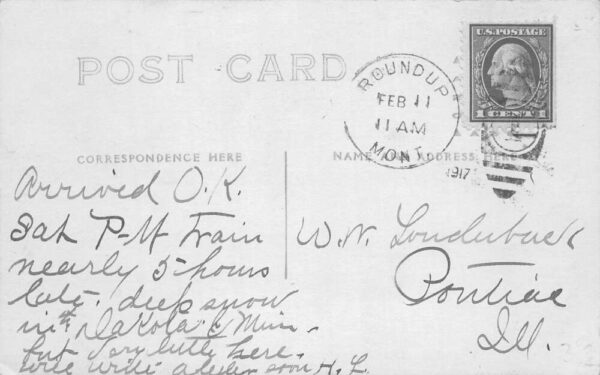 POST CARD
U.S. POSTAGE
1 CENT 1
ROUNDUP
FEB 11
11 AM
MONT.
1917
CORRESPONDENCE HERE
NAME AND ADDRESS HERE
Arrived O.K.
Sat P-M train
nearly 5-hours
late. deep snow
in Dakota & Minn.
but very little here.
will write a letter soon H. L.
W. N. Louderback
Pontiac
Ill.